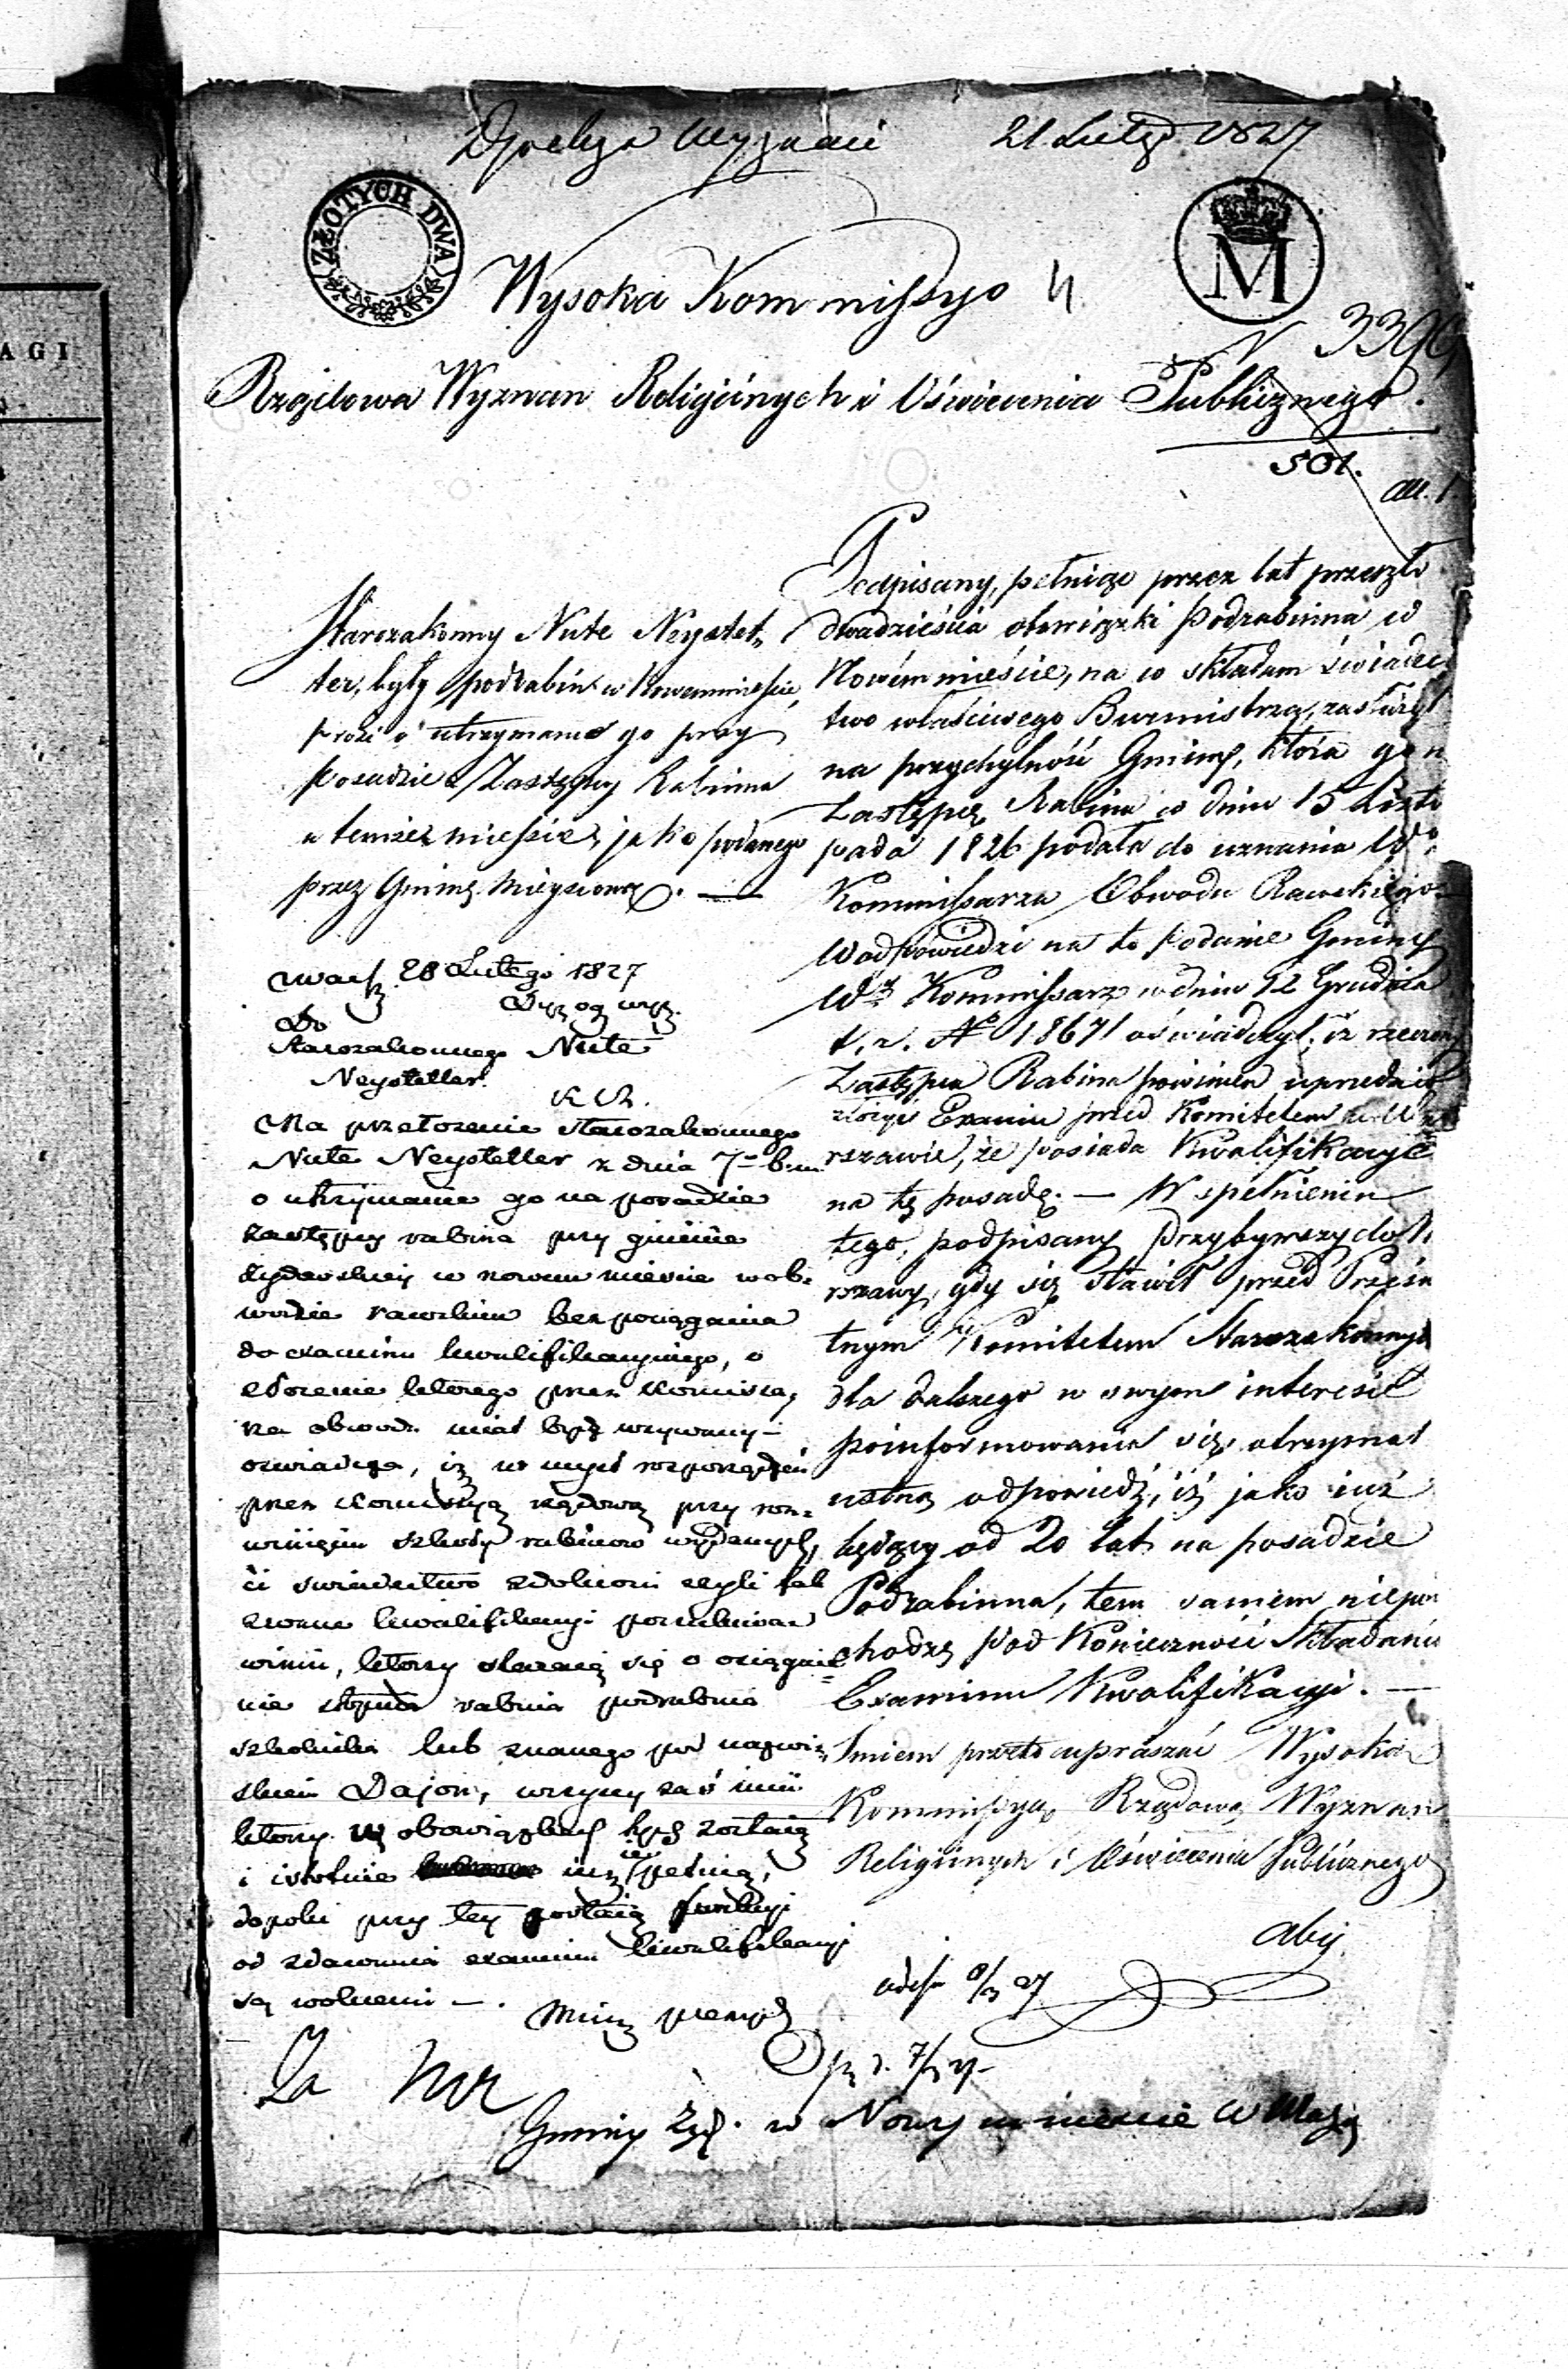 Wyznań 21 Lutego 1827
ZŁOTYCH DWA
M
Wysoka Kommissyo
Rządowa Wyznan Religiinych i Oświecenia Publicznego.
501.
AGI
Starozakonny Nute Neystet-
ter, były podrabin w Nowemmieście,
prosi o utrzymanie go przy
posadzie Zastępcy Rabinna
w temże mieście, jako podanego
przez Gminę Mieyscową. —
Warsz. 28 Lutego 1827
Do
Starozakonnego Nute
Neystetter.
K. R.
Na przełożenie starozakonnego
Nute Neystetter z dnia 7º b. m.
o utrzymanie go na posadzie
zastępcy rabina przy gminie
żydowskiey w nowem miescie w ob-
wodzie rawskim bez pociągania
do examinu kwalifikacyinego, o
złożenie ktorego przez Kommissa-
rza obwodu miał bydź wzywany –
oswiadcza, iż w mysl rozporządzeń
przez Kommissyą rządową przy roz-
winięciu szkoły rabinow wydanych,
ci swiadectwo zdolnosci czyli tak
zwane kwalifikacyi
winni, ktorzy staraią się o osiągnie-
nie stopnia rabina podrabina
szkolnika lub znanego pod nazwi-
skiem Dajon, wszyscy zaś inni
ktorzy w obowiązkach tych zostaią
i istotnie iuż ie pełnią,
dopoki przy tey zostaią funkcyi
od zdawania examinu kwalifikacyi
są wolnemi —.
Podpisany, pełniąc przez lat przeszło
dwadzieścia obowiązki Podrabinna w
Nowém mieście, na co składam świadec
two właściwego Burmistrza, zasłużył
na przychylność Gminy, która go n
Zastępcę Rabina w dniu 15 Listo
pada 1826 podała do uznania Wº
Kommissarza Obwodu Rawskiego.
W odpowiedzi na to podanie Gminy
Wy Kommissarz w dniu 12 Grudnia
t. r. Nº 18671 oświadczył, iż rzeczony
Zastępca Rabina powinien uprzednio
złożyć Examin przed Komitetem w Wa
rszawie, że posiada Kwalifikacyę
na tę posadę. — W spełnieniu
tego, podpisany przybywszy do W.
rszawy, gdy się stawił przed Prześw
tnym Komitetem Starozakonnych
dla dalszego w swym interesie
poinformowania się, otrzymał
ustną odpowiedź, iż jako iuż
będący od 20 lat na posadzie
Podrabinna, tem samem niepod
chodzę pod Konieczność Składania
Examinu Kwalifikacyi. —
Smiem przeto upraszać Wysoką
Kommissyą Rządową Wyznan
Religiinych i Oświecenia Publicznego
aby
Za
Gminy Żyd. w Nowym miescie